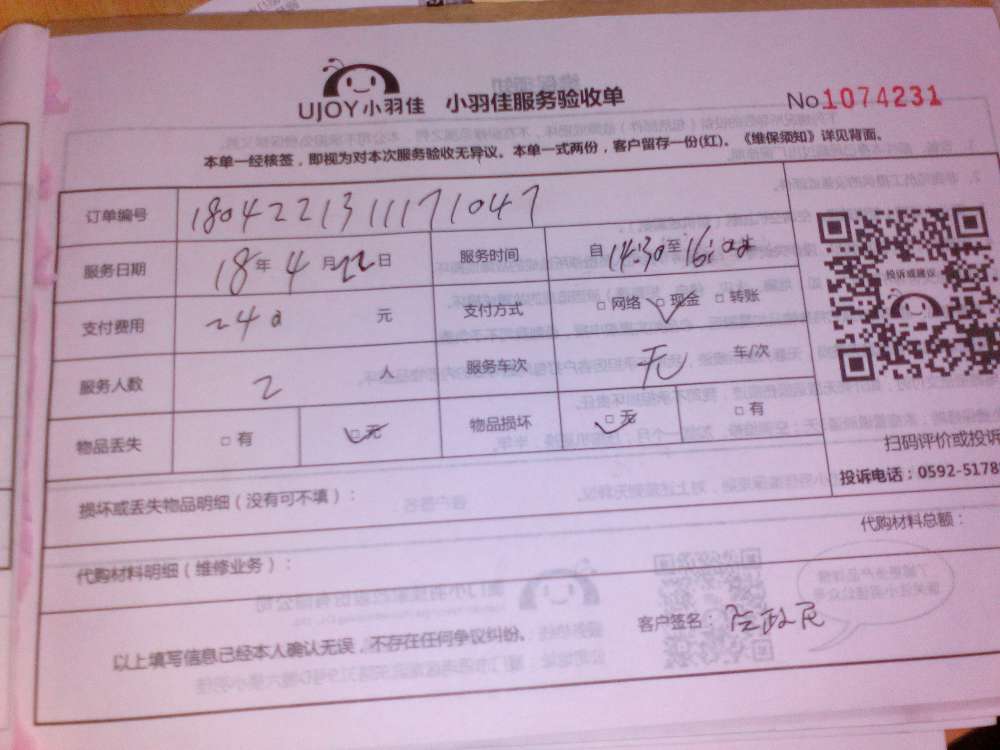 UJOY小羽佳 小羽佳服务验收单 No 1074231
本单一经核签，即视为对本次服务验收无异议。本单一式两份，客户留存一份(红)。《维保须知》详见背面。
订单编号 180422131117 1047
服务日期 18年4月22日 服务时间 自14:30至16:00止
支付费用 240 元 支付方式 □网络 □现金 □转账
服务人数 2 人 服务车次 无 车/次
物品丢失 □有 □无 物品损坏 □无 □有
投诉或建议
扫码评价或投诉
投诉电话：0592-5178
损坏或丢失物品明细（没有可不填）：
代购材料总额：
代购材料明细（维修业务）：
以上填写信息已经本人确认无误，不存在任何争议纠纷。 客户签名：陈政民